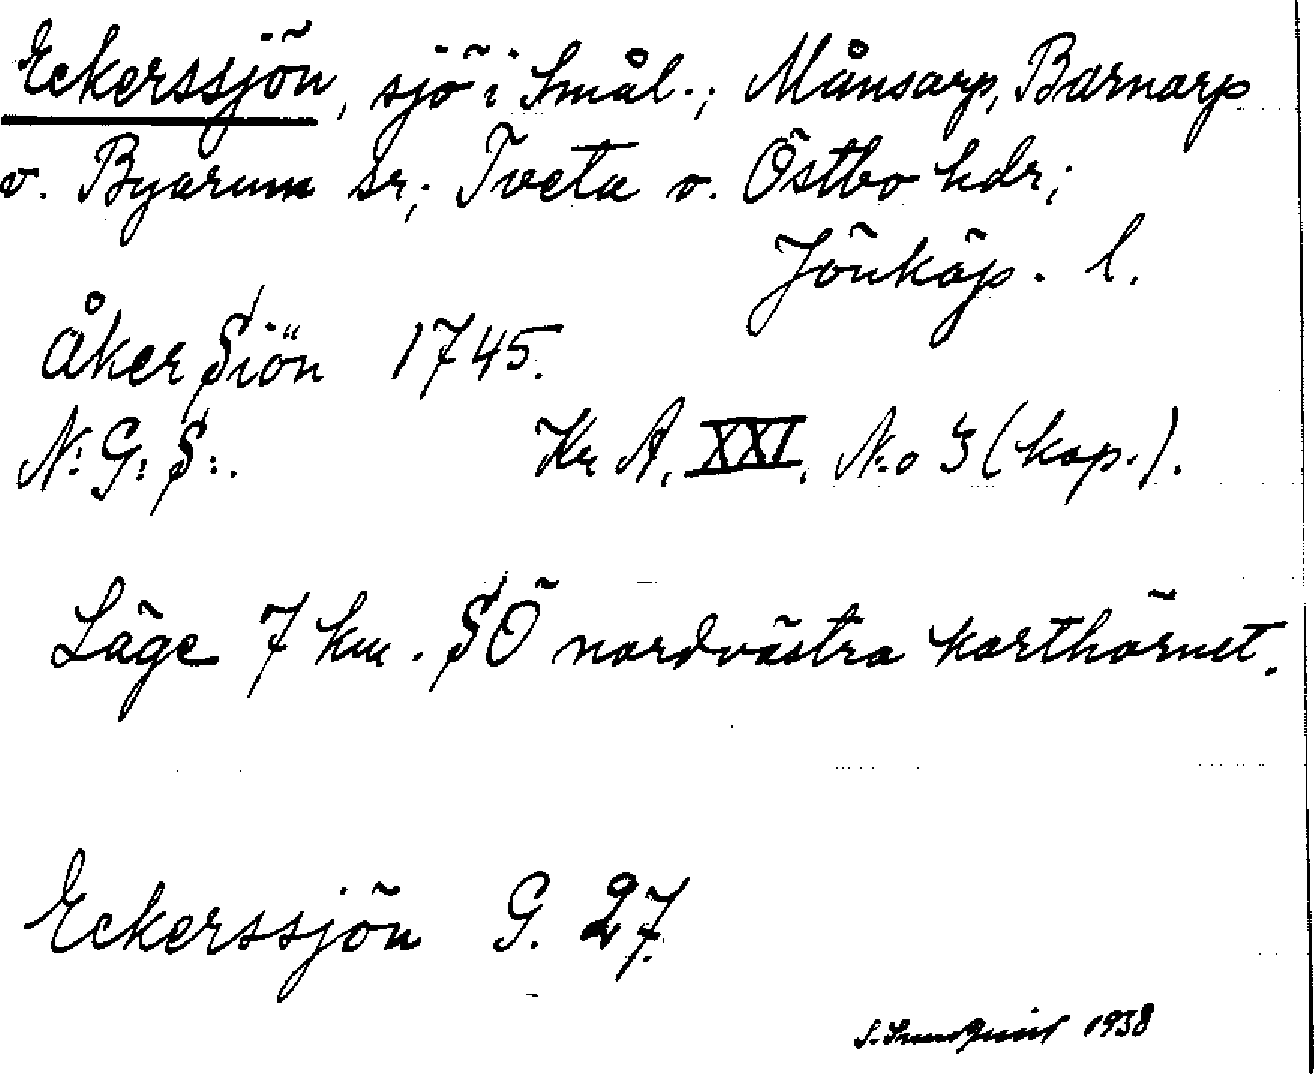 Eckerssjön, sjö i Smål.; Månsarp, Barnarp
o. Byarum sr; Tveta o. Östbo hdr;
Jönköp. l.
åker Siön 1745.
N: G: S:. Kr A. XXI. N:o 3 (kop.).
Läge 7 km. SÖ nordvästra karthörnet.
Eckerssjön G. 27.
1938